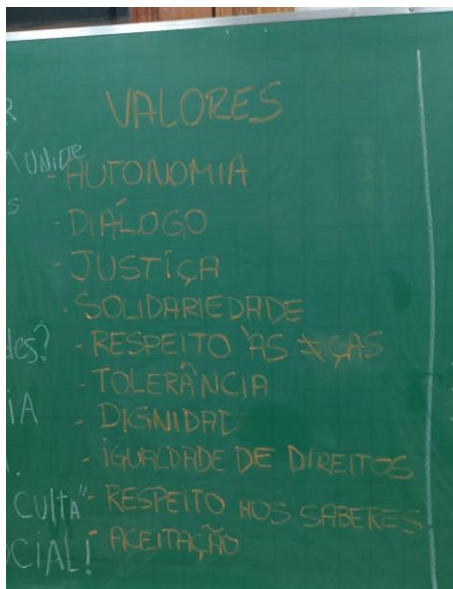 VALORES
- AUTONOMIA
- DIÁLOGO
- JUSTIÇA
- SOLIDARIEDADE
- RESPEITO ÀS ≠ÇAS
- TOLERÂNCIA
- DIGNIDAD
- IGUALDADE DE DIREITOS
- RESPEITO AOS SABERES
- ACEITAÇÃO
R
UNIDRE
S
des?
IA
CULTA"
OCIAL!